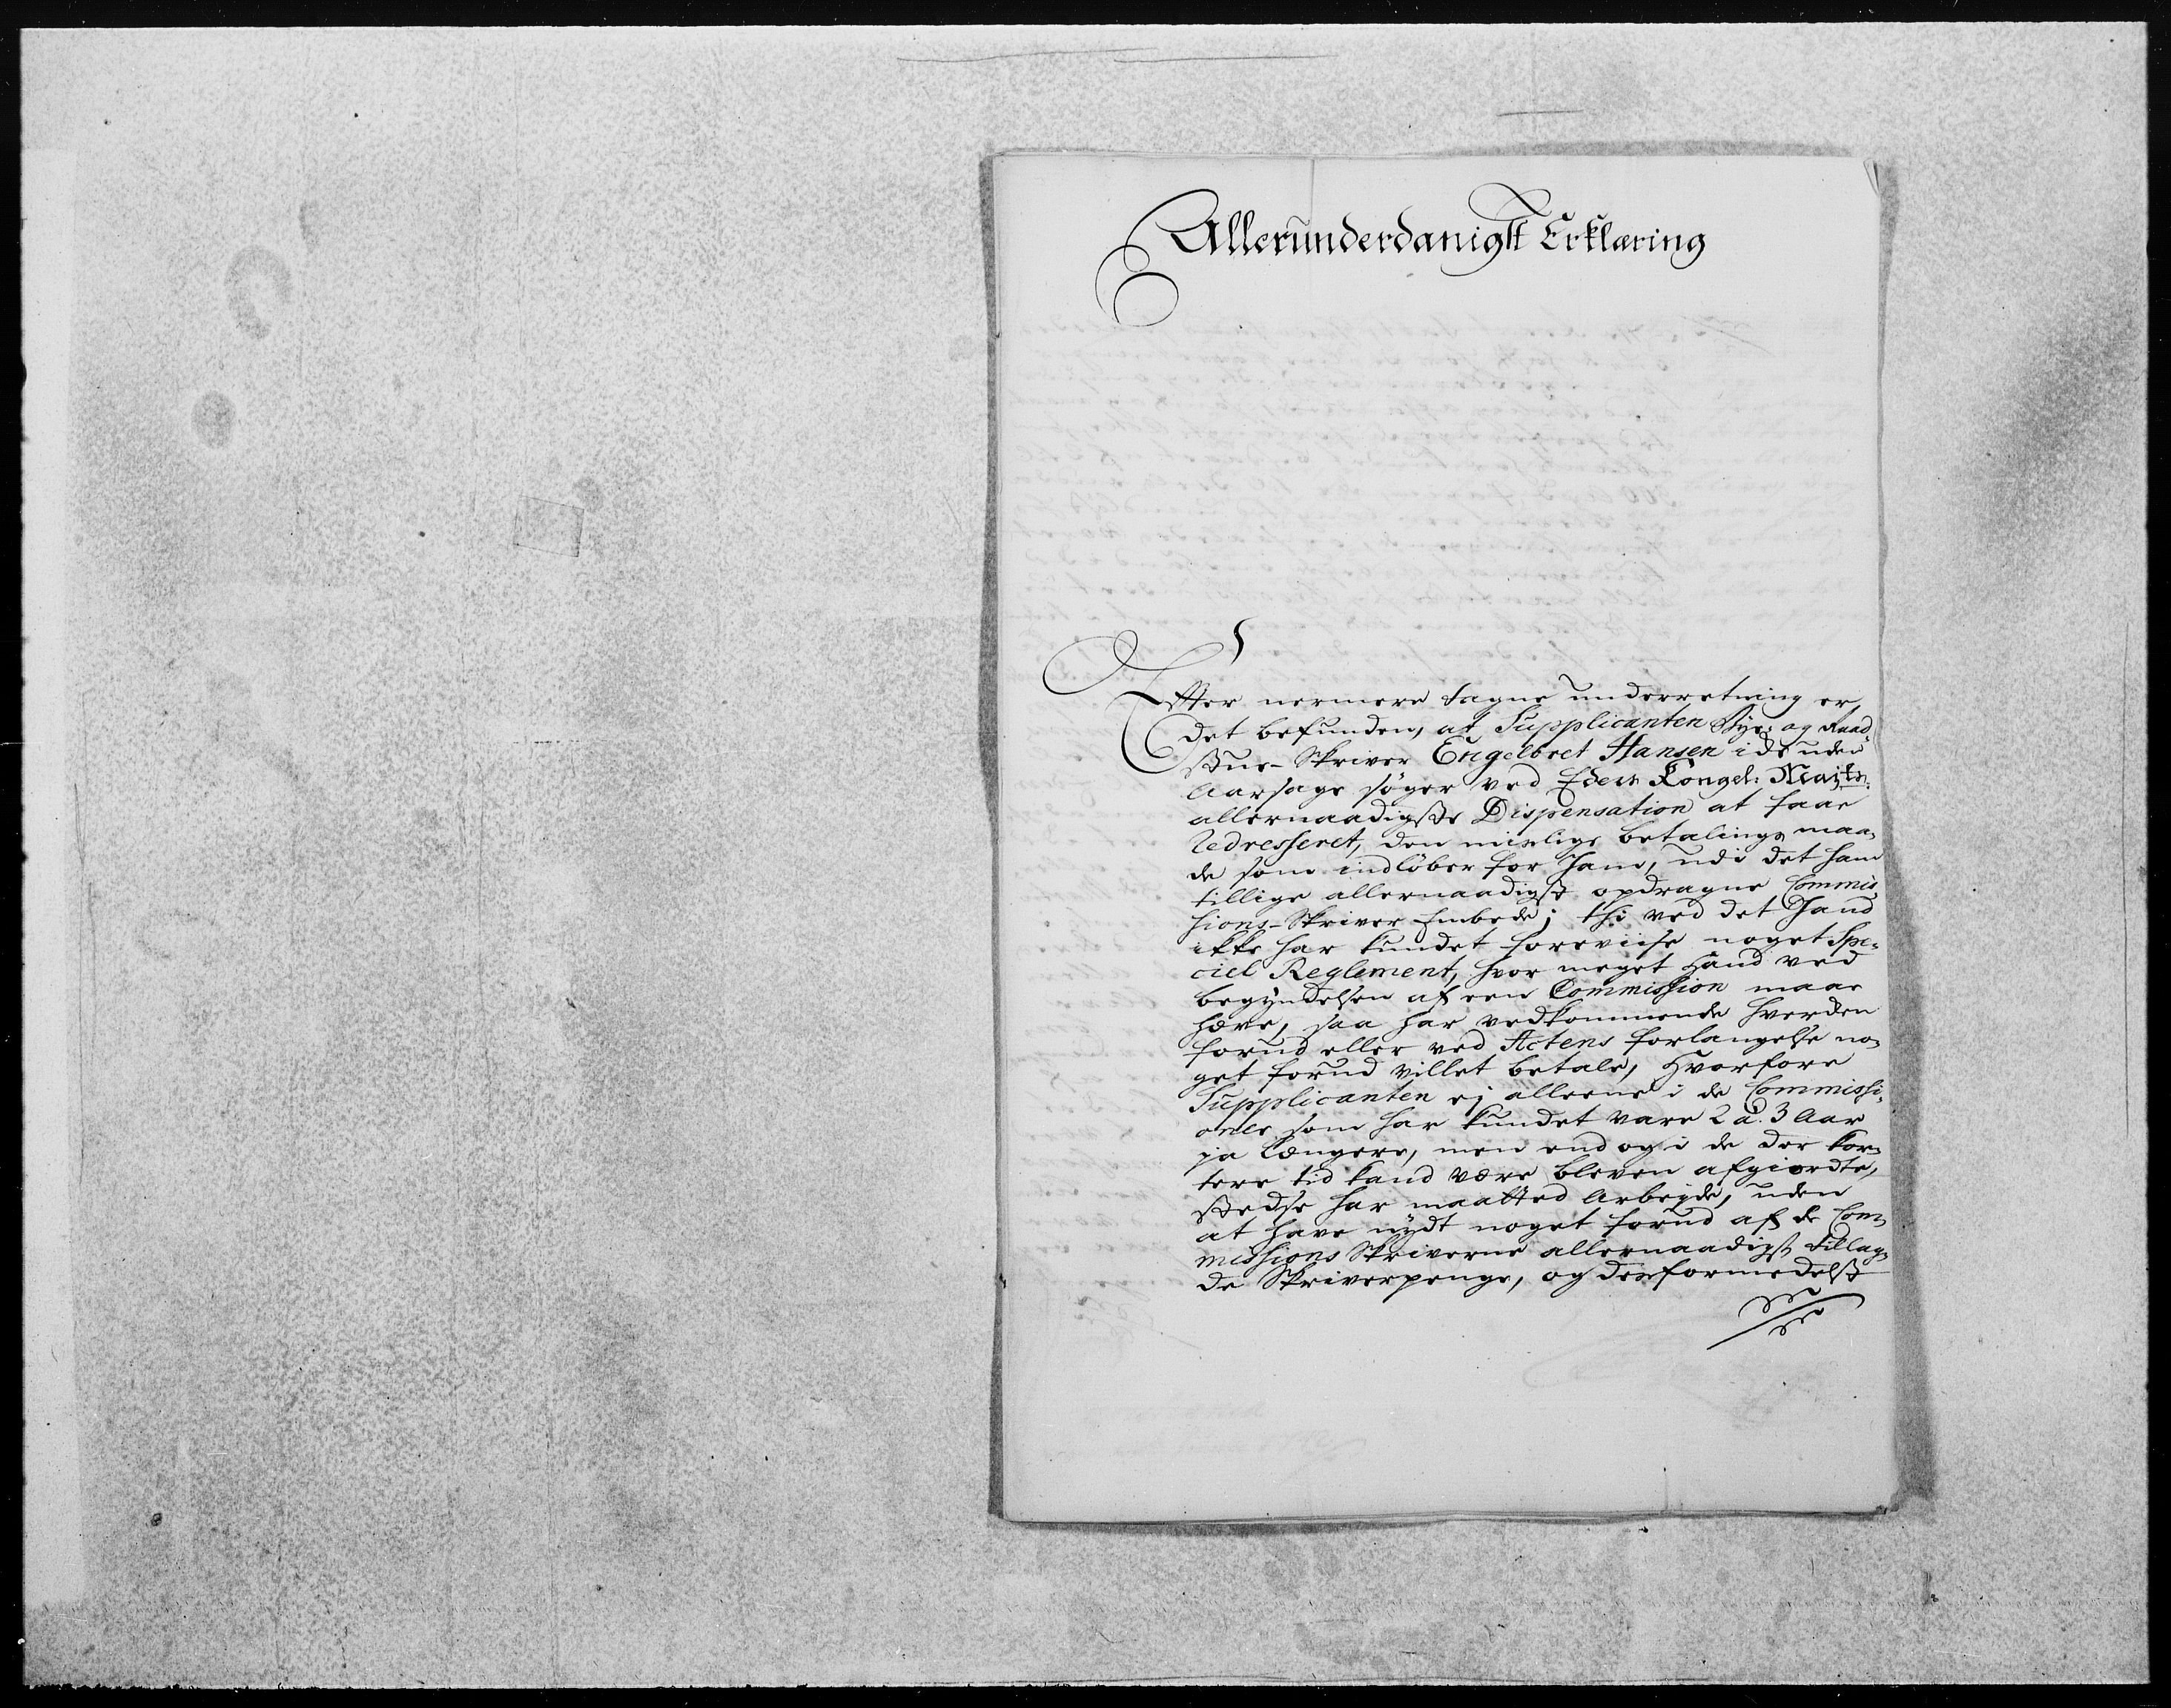 Allerunderdanigst Erklæring
Efter nermere tagne underretning er,
det befunden, at Supplicanten Bye- og Raad-
stue-Skriver Engelbret Hansen i de uden
Aarsage søger ved Eders Kongel: Mayts:
allernaadigste Dispensation at faae
Redresseret, den mislige betalings maa-
de som indløber for Ham, udi det ham
tillige allernaadigst opdragne Commis-
sions-Skriver Embede; thi ved det Hand
ikke har kundet foreviise noget Spe-
ciel Reglement, hvor meget Hand ved
begyndelsen af een Commission maae
hæve, saa har vedkommende hverden
forud eller ved Actens forlangelse no-
get forud villet betale, Hvorfore
Supplicanten ej alleene i de Commissi-
oner som har kundet vare 2 à 3 Aar
ja længere, men end og i de der kor-
tere tid kand være bleven afgiordte,
stedse har maatted Arbeyde, uden
at have nydt noget forud af de Com-
missions Skriverne allernaadigst tillag-
de Skriverpenge, og desformedelst